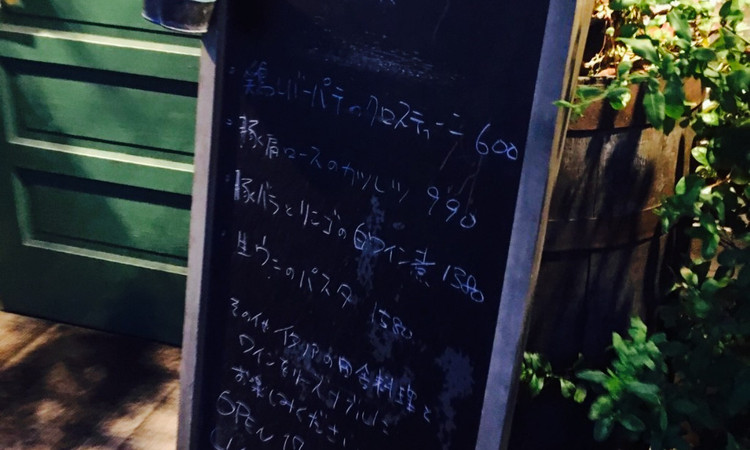 ・鶏レバーパテのクロスティーニ 600
・豚肩ロースのカツレツ 990
・豚バラとリンゴの白ワイン煮 1580
・生ウニのパスタ 1580
その他 イタリアの田舎料理と
ワインを
お楽しみください
OPEN